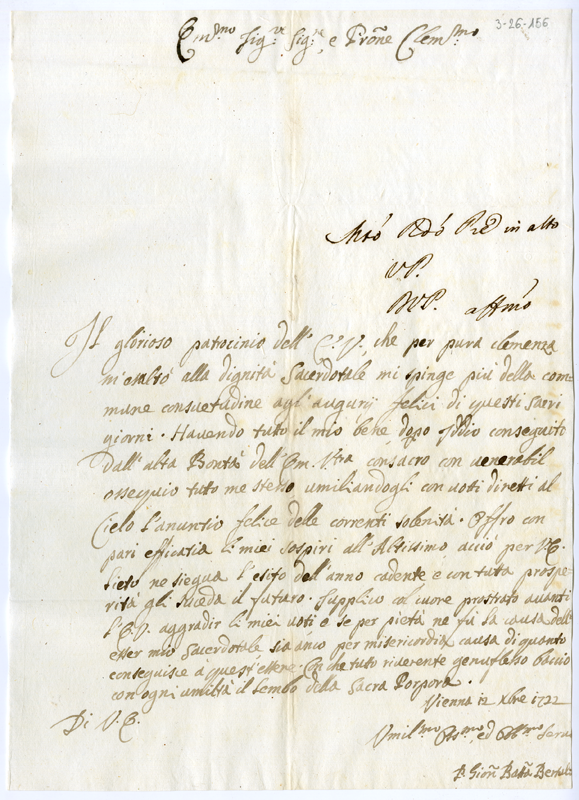 3-26-156
Em.mo Sig.re Sig.re e Prõne Clem.mo
in alto
VP.
BVP. affmo
Il glorioso patocinio dell' E. V. che per pura clemenza
m'esaltò alla dignità Sacerdotale mi spinge più della com=
mune consuetudine agl'augurij felici di questi sacri
giorni. Havendo tuto il mio bene dopo Iddio conseguito
dall'alta Bontà dell'Em. Vtra consacro con venerabil
ossequio tuto me stesso umiliandogli con voti diretti al
Cielo l'anuntio felice delle correnti solenità. Offro con
pari efficatia li miei sospiri all'Altissimo acciò per V.E.
lieto ne siegua l'esito dell'anno cadente e con tuta prospe=
rità gli suceda il futuro. Supplico col cuore prostrato avanti
l'E.V. aggradir li miei voti e se per pietà ne fù la causa dell'
esser mio Sacerdotale sia anco per misericordia causa di quanto
conseguisce à quest'essere. Con che tuto riverente genuflesso baccio
con ogni umiltà il lembo della Sacra Porpora.
Vienna 12 Xbre 1722
Di V. E.
Umil.mo ed Obb.mo Serv
P. Gioñ Battã